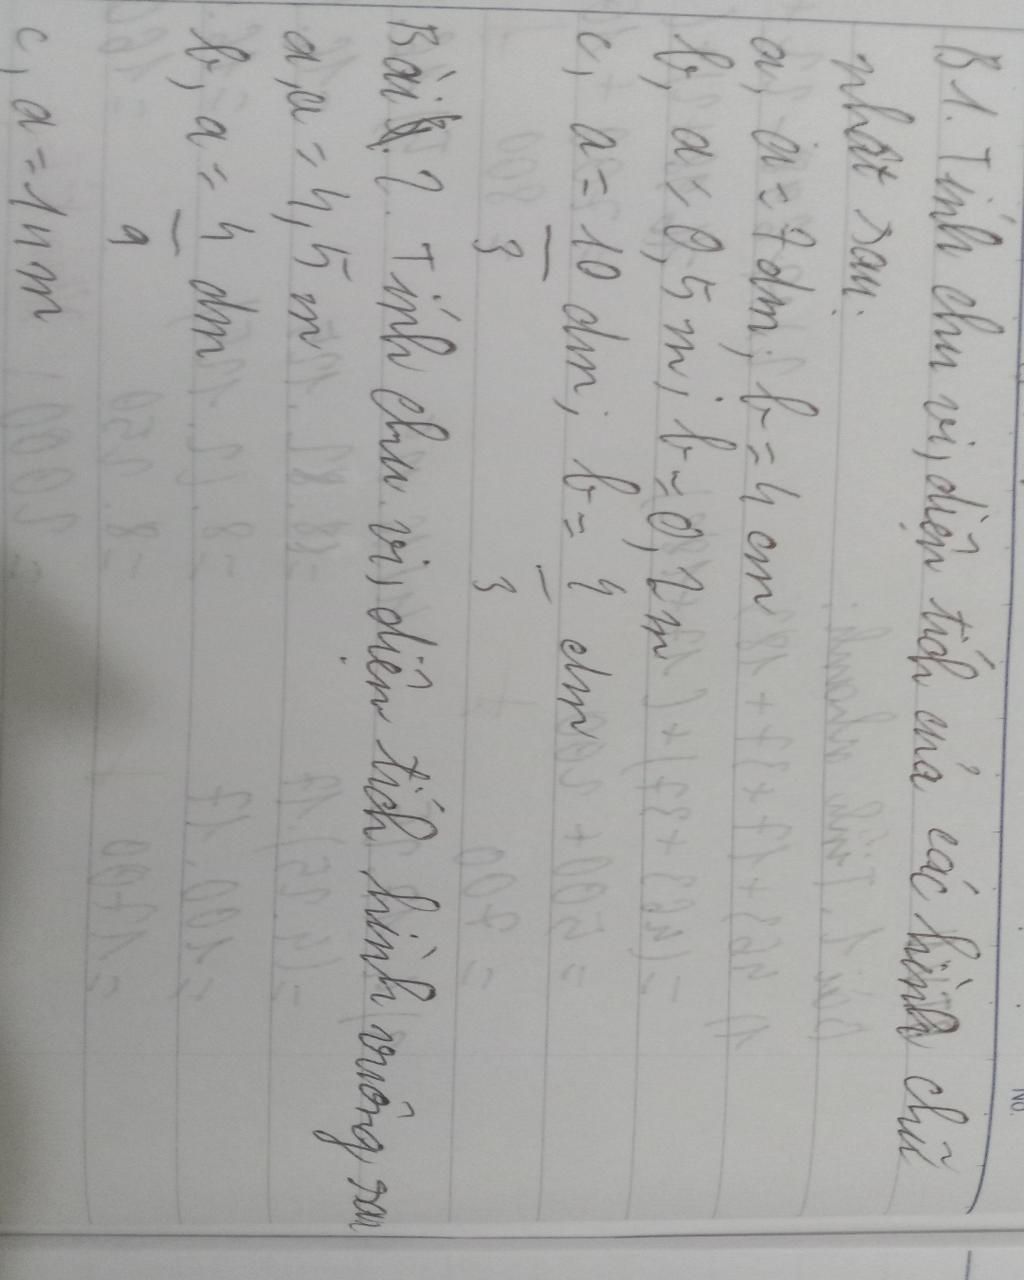 B1. Tính chu vi, diện tích của các hình chữ
nhật sau.
a, a = 7dm; b = 4 cm
b, a = 0,5 m; b = 0,2 m
c, a = 10/3 dm; b = 4/3 dm
Bài 2. Tính chu vi, diện tích hình vuông sau
a, a = 4,5 m
b, a = 4/9 dm
c, a = 14m